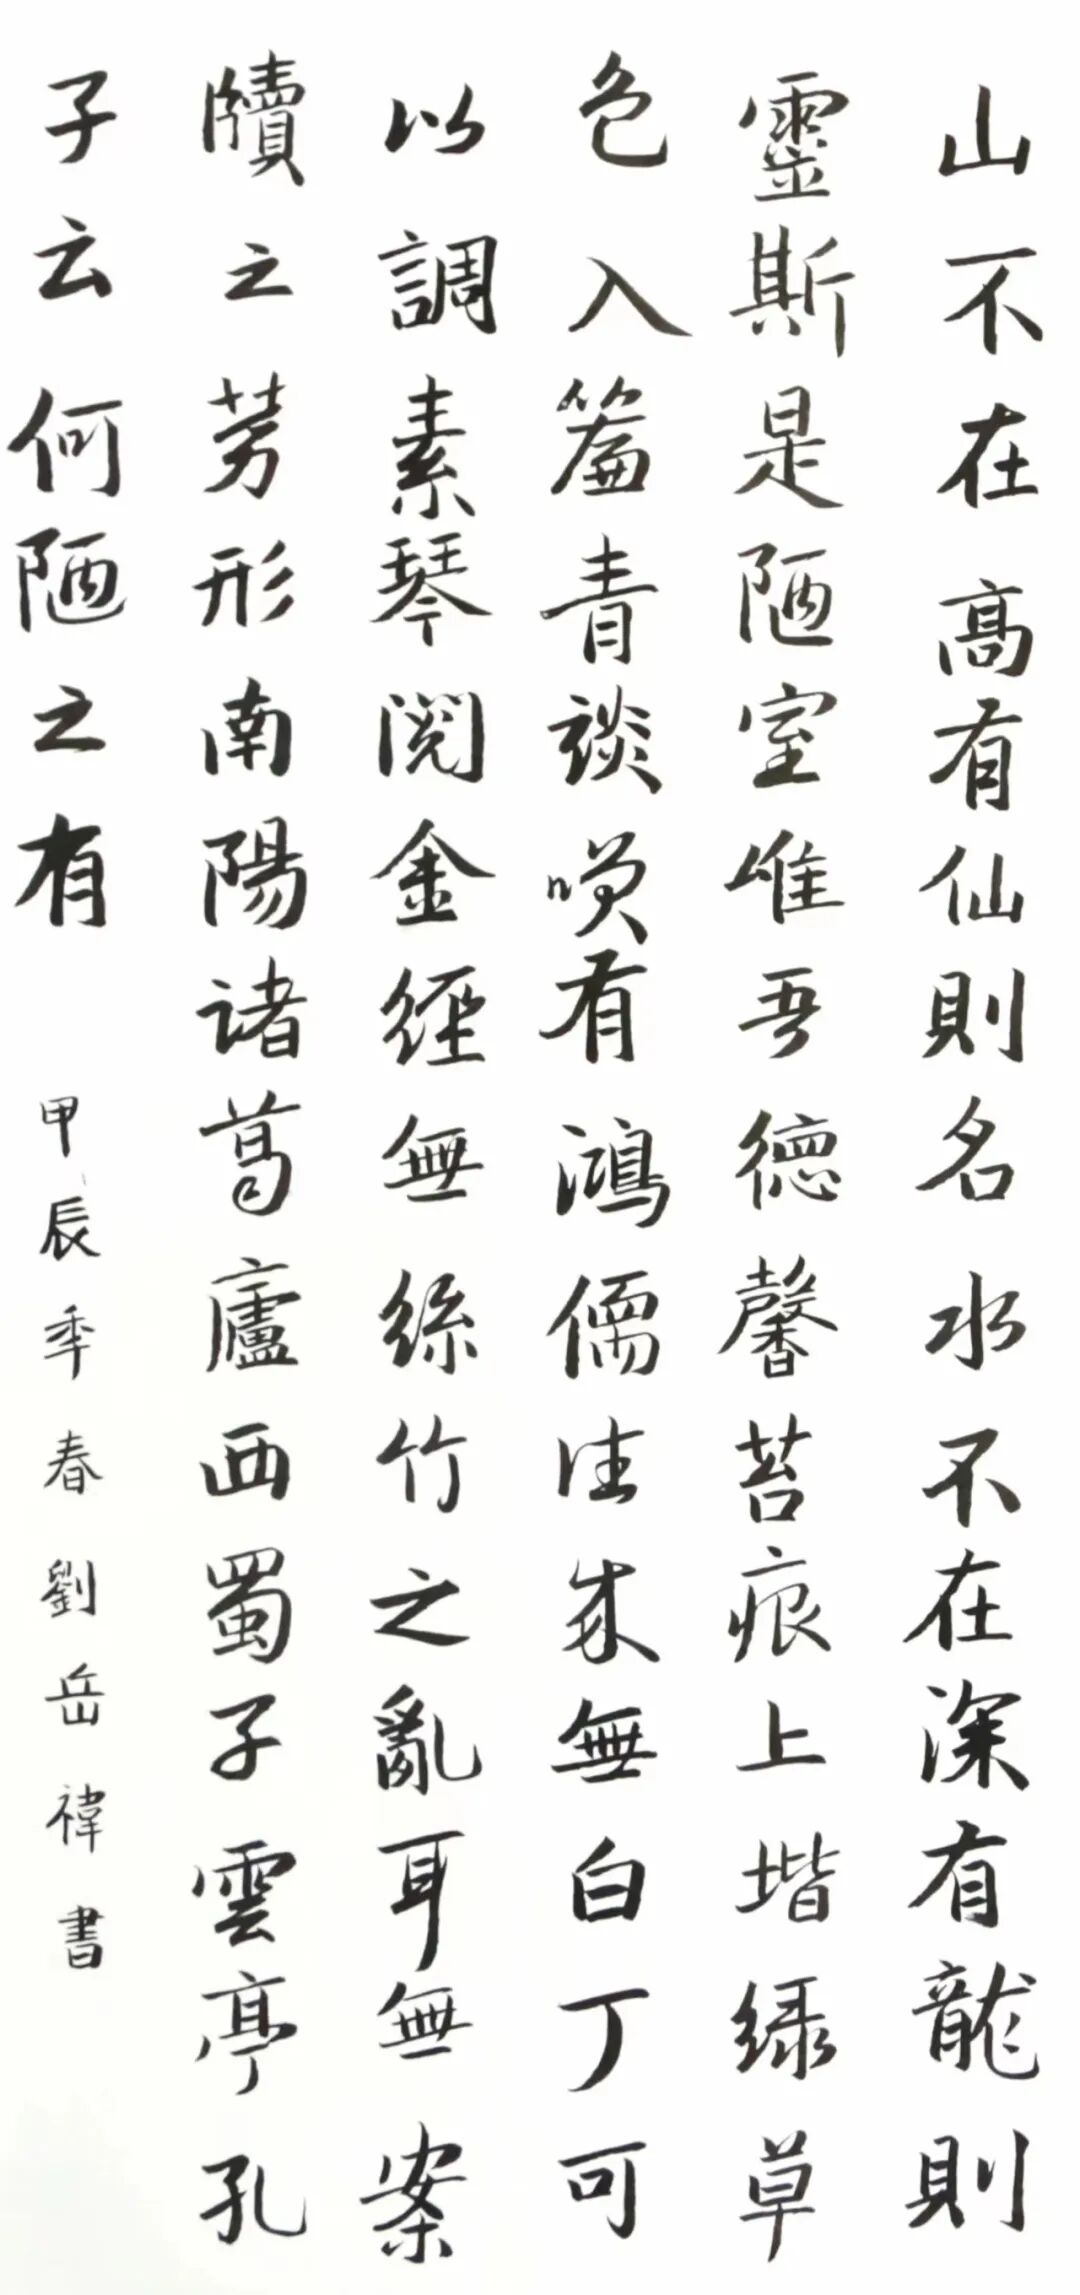 山不在高有仙則名水不在深有龍則
靈斯是陋室唯吾德馨苔痕上堦绿草
色入簾青談咲有鴻儒往来無白丁可
以調素琴閱金經無絲竹之亂耳無案
牘之劳形南陽诸葛廬西蜀子雲亭孔
子云何陋之有
甲辰季春劉岳禕書